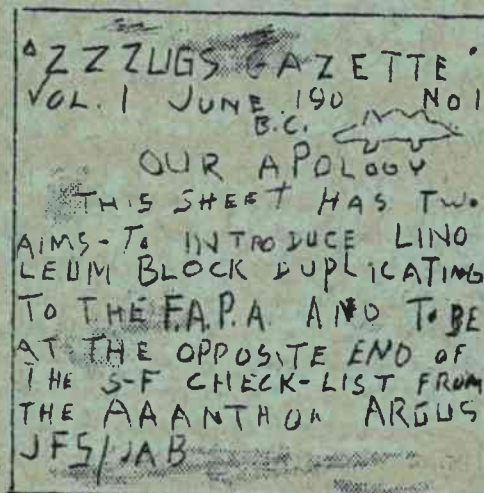 "ZZZUGS GAZETTE"
VOL. 1 JUNE 190 NO 1
B.C.
OUR APOLOGY
THIS SHEET HAS TWO
AIMS - TO INTRODUCE LINO
LEUM BLOCK DUPLICATING
TO THE F.A.P.A. AND TO BE
AT THE OPPOSITE END OF
THE S-F CHECK-LIST FROM
THE AAANTHOR ARGUS
JFS/JAB